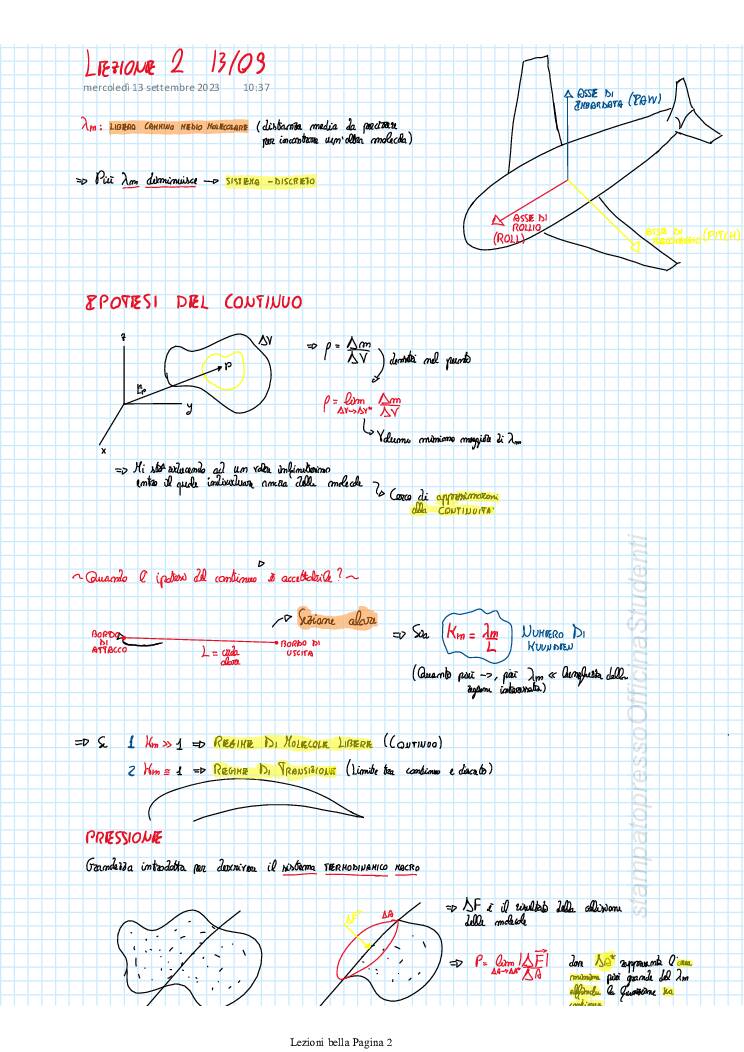 LEZIONE 2 13/09
mercoledì 13 settembre 2023 10:37
λm: LIBERO CAMMINO MEDIO MOLECOLARE (distanza media da percorrere
per incontrare un'altra molecola)
⇒ Più λm diminuisce → SISTEMA - DISCRETO
ASSE DI
IMBARDATA (YAW)
ASSE DI
ROLLIO
(ROLL)
ASSE DI
BECCHEGGIO (PITCH)
IPOTESI DEL CONTINUO
z
ΔV
P
rp
y
x
⇒ ρ = Δm/ΔV
densità nel punto
ρ = lim ΔV→ΔV* Δm/ΔV
Volume minimo maggiore di λm
⇒ Mi sto riducendo ad un volume infinitesimo
entro il quale individuare ancora delle molecole
Cerco di approssimazioni
della CONTINUITA'
~ Quando l'ipotesi del continuo è accettabile? ~
Sezione alare
BORDO
DI
ATTACCO
L = corda
alare
BORDO DI
USCITA
⇒ Sia Km = λm/L NUMERO DI
KUUNDEN
(Quanto più →, più λm << lunghezza della
regione interessata)
⇒ Se 1 Km >> 1 ⇒ REGIME DI MOLECOLE LIBERE (CONTINUO)
2 Km ≅ 1 ⇒ REGIME DI TRANSIZIONE (Limite tra continuo e discreto)
PRESSIONE
Grandezza introdotta per descrivere il sistema TERMODINAMICO MACRO
ΔA
⇒ ΔF è il risultato della collisione
delle molecole
⇒ P = lim ΔA→ΔA* |ΔF|/ΔA dove ΔA* rappresenta l'area
minima più grande del λm
affinché la funzione sia
continua
stampatopressoOfficinaStudenti
Lezioni bella Pagina 2